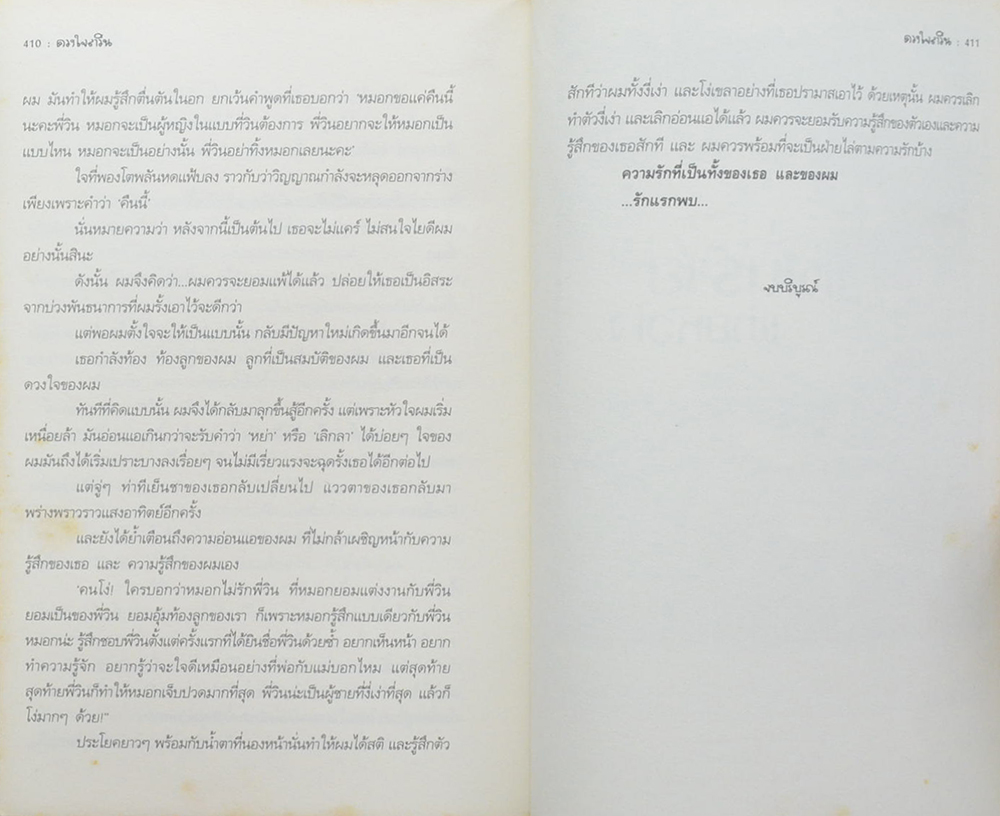 410 : ดวงใจภวิน
ผม มันทำให้ผมรู้สึกตื่นตันในอก ยกเว้นคำพูดที่เธอบอกว่า ‘หมอกขอแค่คืนนี้
นะคะพี่วิน หมอกจะเป็นผู้หญิงในแบบที่วินต้องการ พี่วินอยากจะให้หมอกเป็น
แบบไหน หมอกจะเป็นอย่างนั้น พี่วินอย่าทิ้งหมอกเลยนะคะ’
ใจที่พองโตพลันหดแฟ้บลง ราวกับว่าวิญญาณกำลังจะหลุดออกจากร่าง
เพียงเพราะคำว่า ‘คืนนี้’
นั่นหมายความว่า หลังจากนี้เป็นต้นไป เธอจะไม่แคร์ ไม่สนใจไยดีผม
อย่างนั้นสินะ
ดังนั้น ผมจึงคิดว่า...ผมควรจะยอมแพ้ได้แล้ว ปล่อยให้เธอเป็นอิสระ
จากบ่วงพันธนาการที่ผมรั้งเอาไว้จะดีกว่า
แต่พอผมตั้งใจจะให้เป็นแบบนั้น กลับมีปัญหาใหม่เกิดขึ้นมาอีกจนได้
เธอกำลังท้อง ท้องลูกของผม ลูกที่เป็นสมบัติของผม และเธอที่เป็น
ดวงใจของผม
ทันทีที่คิดแบบนั้น ผมจึงได้กลับมาลุกขึ้นสู้อีกครั้ง แต่เพราะหัวใจผมเริ่ม
เหนื่อยล้า มันอ่อนแอเกินกว่าจะรับคำว่า ‘หย่า’ หรือ ‘เลิกลา’ ได้บ่อยๆ ใจของ
ผมมันถึงได้เริ่มเปราะบางลงเรื่อยๆ จนไม่มีเรี่ยวแรงจะฉุดรั้งเธอได้อีกต่อไป
แต่จู่ๆ ท่าทีเย็นชาของเธอกลับเปลี่ยนไป แววตาของเธอกลับมา
พร่างพราวราวแสงอาทิตย์อีกครั้ง
และยังได้ย้ำเตือนถึงความอ่อนแอของผม ที่ไม่กล้าเผชิญหน้ากับความ
รู้สึกของเธอ และ ความรู้สึกของผมเอง
‘คนโง่! ใครบอกว่าหมอกไม่รักพี่วิน ที่หมอกยอมแต่งงานกับพี่วิน
ยอมเป็นของพี่วิน ยอมอุ้มท้องลูกของเรา ก็เพราะหมอกรู้สึกแบบเดียวกับพี่วิน
หมอกน่ะ รู้สึกชอบพี่วินตั้งแต่ครั้งแรกที่ได้ยินชื่อพี่วินด้วยซ้ำ อยากเห็นหน้า อยาก
ทำความรู้จัก อยากรู้ว่าจะใจดีเหมือนอย่างที่พ่อกับแม่บอกไหม แต่สุดท้าย
สุดท้ายพี่วินก็ทำให้หมอกเจ็บปวดมากที่สุด พี่วินน่ะเป็นผู้ชายที่งี่เง่าที่สุด แล้วก็
โง่มากๆ ด้วย!’
ประโยคยาวๆ พร้อมกับน้ำตาที่นองหน้านั่นทำให้ผมได้สติ และรู้สึกตัว
ดวงใจภวิน : 411
สักทีว่าผมทั้งงี่เง่า และโง่เขลาอย่างที่เธอปรามาสเอาไว้ ด้วยเหตุนั้น ผมควรเลิก
ทำตัวงี่เง่า และเลิกอ่อนแอได้แล้ว ผมควรจะยอมรับความรู้สึกของตัวเองและความ
รู้สึกของเธอสักที และ ผมควรพร้อมที่จะเป็นฝ่ายไล่ตามความรักบ้าง
ความรักที่เป็นทั้งของเธอ และของผม
...รักแรกพบ...
จบบริบูรณ์